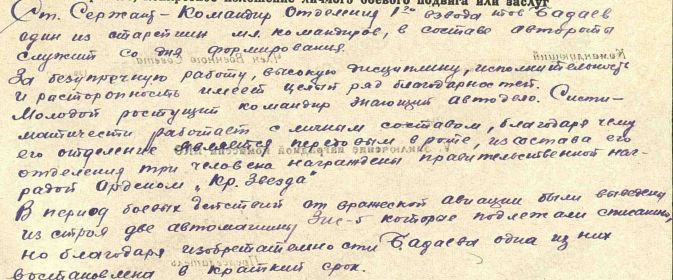 личного боевого подвига или заслуг
Ст. Сержант – Командир Отделения 1го взвода тов Бадаев
один из старейшин мл. командиров, в составе автороты
служит со дня формирования.
За безупречную работу, высокую дисциплину, исполнительность
и расторопность имеет целый ряд благодарностей.
Молодой ростущий командир знающий автодело. Систи-
матически работает с личным составом, благодаря чему
его отделение является передовым в роте, из состава его
отделения три человека награждены правительственной наг-
радой Орденом „Кр. Звезда"
В период боевых действий от вражеской авиации были выведены
из строя две автомашины Зис-5 которые подлежали списанию,
но благодаря изобретательности Бадаева одна из них
востановлена в краткий срок.